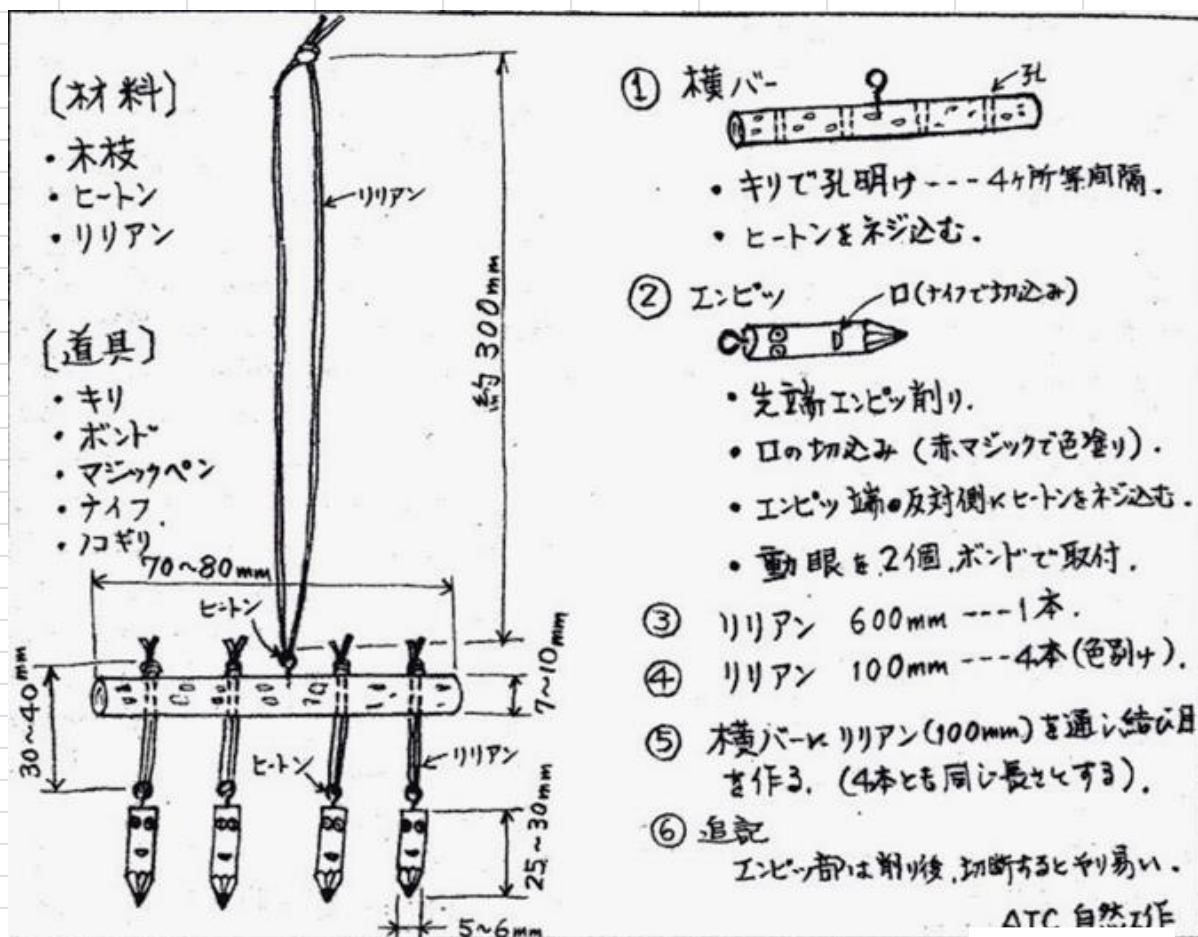 [材料]
・木枝
・ヒートン
・リリアン
[道具]
・キリ
・ボンド
・マジックペン
・ナイフ
・ノコギリ
リリアン
約300mm
70~80mm
ヒートン
7~10mm
30~40mm
ヒートン
リリアン
25~30mm
5~6mm
① 横バー
孔
・キリで孔明け---4ヶ所等間隔.
・ヒートンをネジ込む.
② エンピツ
口(ナイフで切込み)
・先端エンピツ削り.
・口の切込み (赤マジックで色塗り).
・エンピツ端の反対側にヒートンをネジ込む.
・動眼を2個.ボンドで取付.
③ リリアン 600mm ---1本.
④ リリアン 100mm ---4本(色別け).
⑤ 横バーに リリアン(100mm)を通し結び目
を作る. (4本とも同じ長さとする).
⑥ 追記
エンピツ部は削り後.切断するとやり易い.
ATC 自然工作